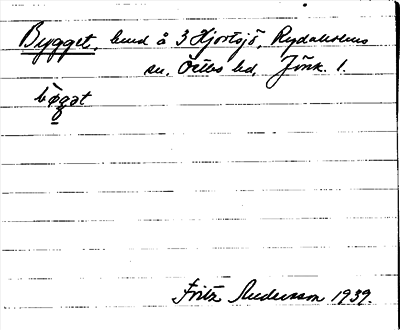 Bygget, lund å 3 Hjortsjö, Rydaholms
sn. Östbo hd. Jönk. l.
bògat
Fritz Andersson 1939.